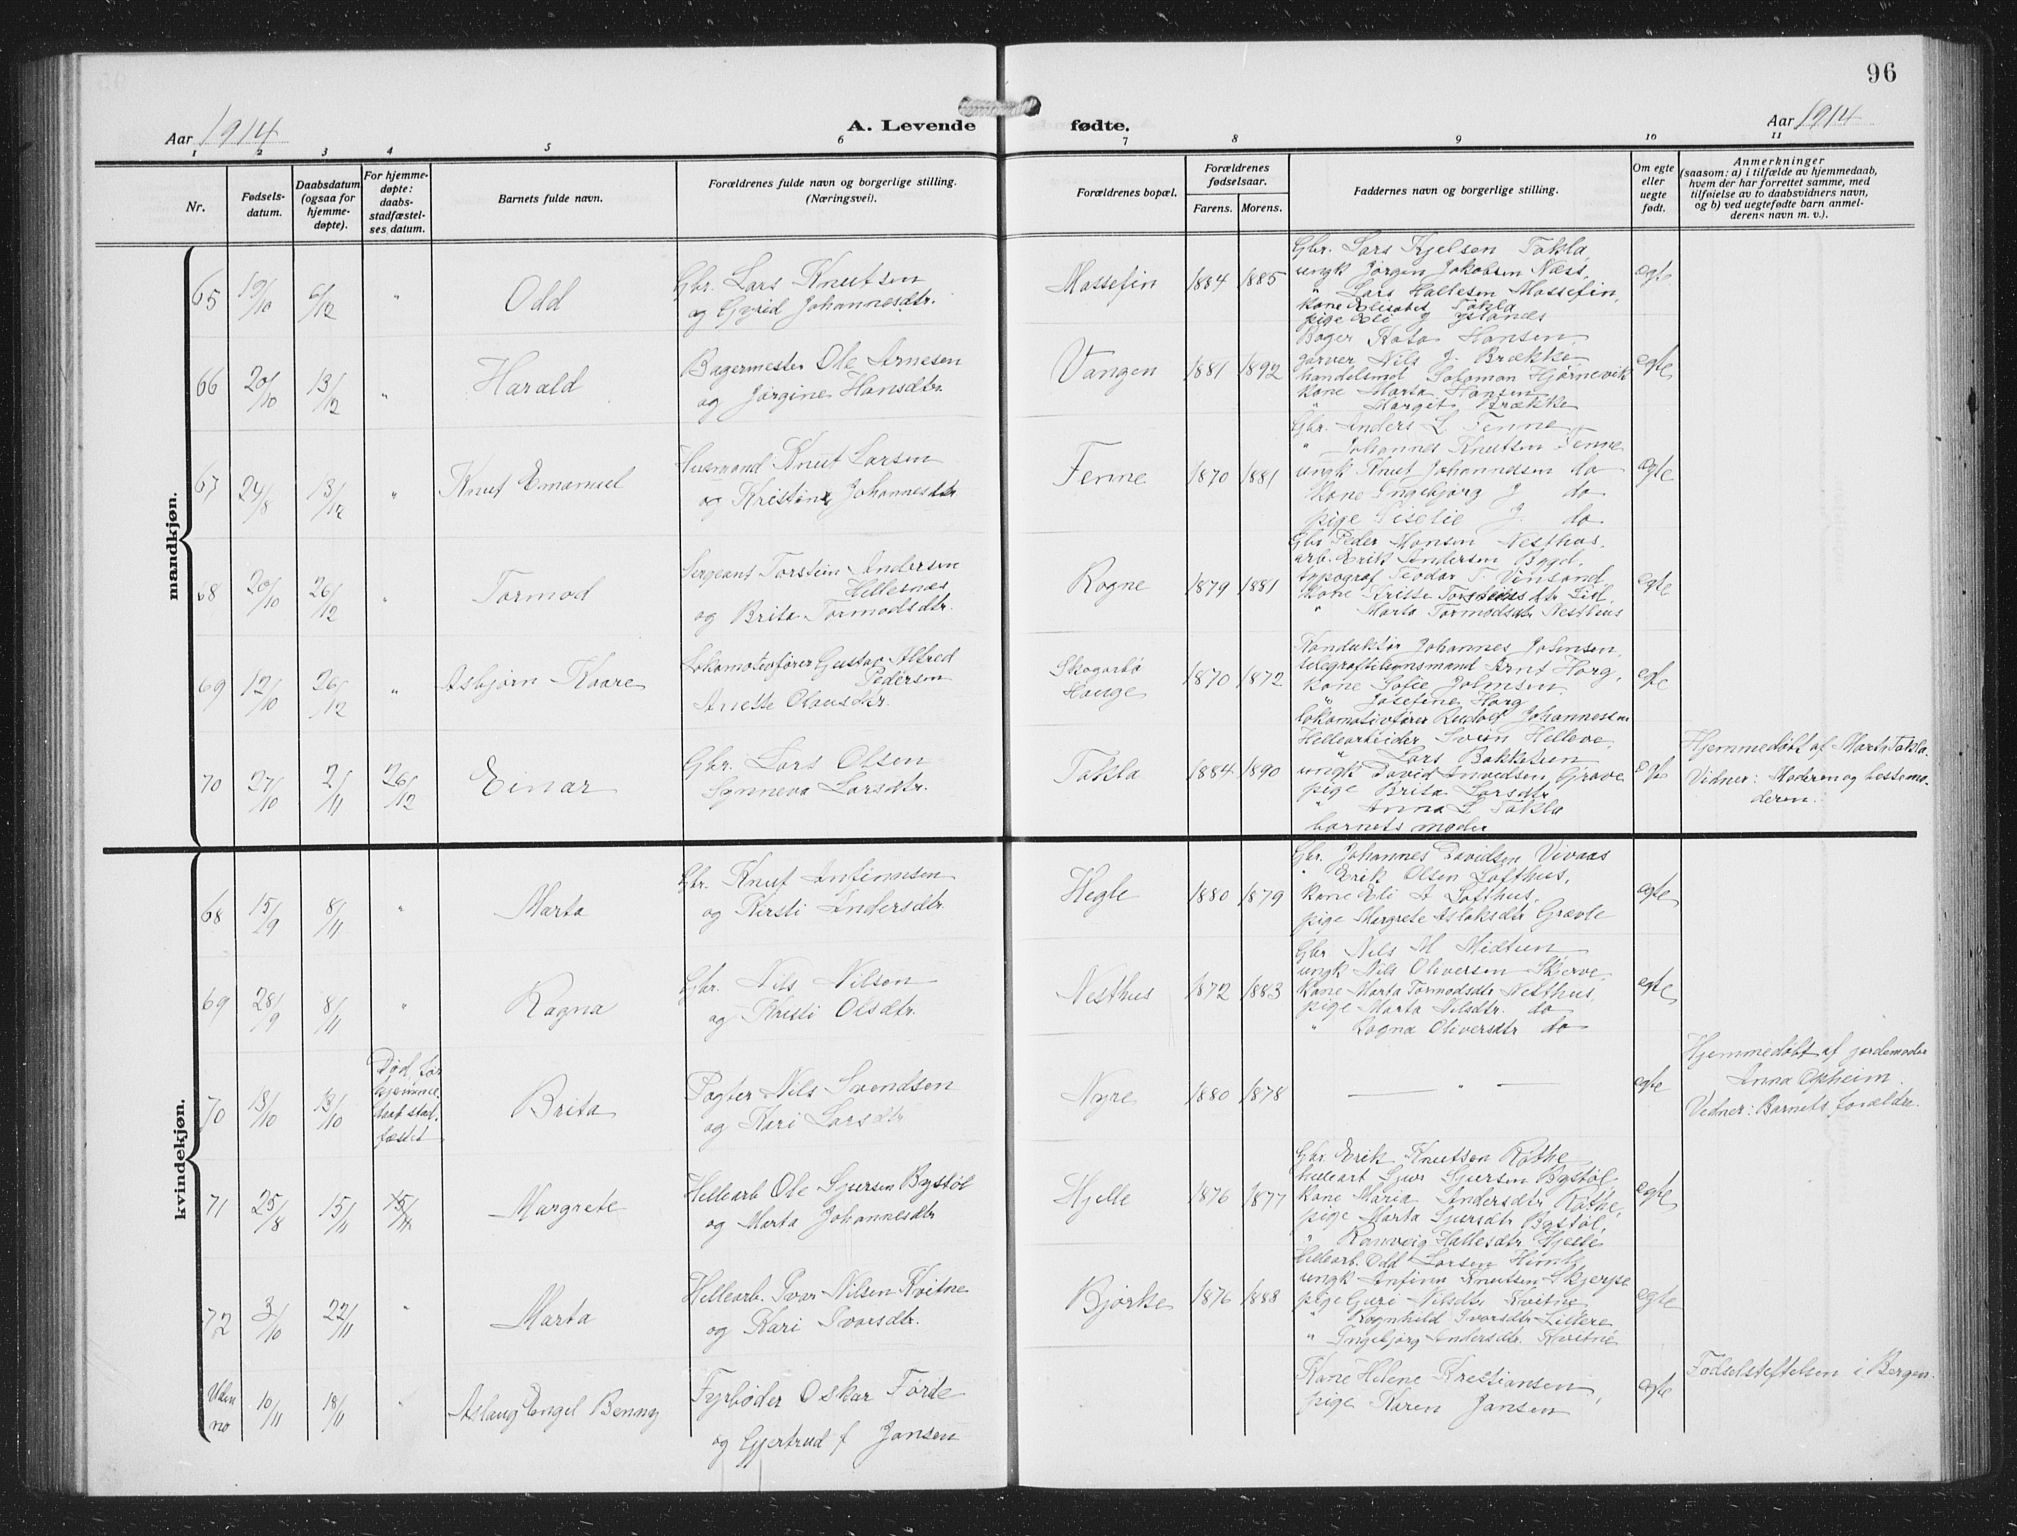 96
Aar 1914
A. Levende fødte.
Aar 1914
1 2 3 4 5 6 7 8 9 10 11
Nr.
Fødsels-
datum.
Daabsdatum
(ogsaa for
hjemme-
døpte).
For hjemme-
døpte:
daabs-
stadfæstel-
ses datum.
Barnets fulde navn.
Forældrenes fulde navn og borgerlige stilling.
(Næringsvei).
Forældrenes bopæl.
Forældrenes
fødselsaar.
Farens. Morens.
Faddernes navn og borgerlige stilling.
Om egte
eller
uegte
født.
Anmerkninger
(saasom: a) i tilfælde av hjemmedaab,
hvem der har forrettet samme, med
tilføielse av to daabsvidners navn,
og b) ved uegtefødte barn anmel-
derens navn m. v.).
mandkjøn.
65 19/10 6/12 " Odd
Gbr. Lars Knutsen
og Gyrid Johannesdtr.
Mossefin 1884 1885
Gbr. Lars Kjelsen Takla
ungk Jørgen Jakobsen Næss,
" Lars Hallesen Mossefin,
kone Elisabet Takla
pige Eli J
egte
66 20/10 13/12 " Harald
Bagermester Ole Arnesen
og Jørgine Hansdtr.
Vangen 1881 1892
Bager Hansen,
garver Nils J. Brække
handelsmd Salomon Hjørnevik
kone Marta Hansen
" Marget Brække
egte
67 24/8 13/12 " Knut Emanuel
Husmand Knut Larsen
og Kristine Johannesdtr
Fenne 1870 1881
Gbr. Anders L. Fenne
" Johannes Knutsen Fenne
ungk Knut Johannesen do
kone Ingebjørg J do
pige J. do
egte
68 20/10 26/12 " Tormod
Sergeant Torstein Andersen
Hellesnes
og Brita Tormodsdtr.
Rogne 1879 1881
Gbr Peder Monsen Nesthus,
arb. Erik Andersen Bygd,
typograf Teodor T. Vinsand
kone
" Marta Tormodsdtr Nesthus
egte
69 12/10 26/12 " Asbjørn Kaare
Lokomotivfører Gustav Alfred
Pedersen
Anette Olausdtr.
Skogarbø
Hauge 1870 1872
Konduktør Johannes Johnsen,
Arnt Horg,
kone Sofie Johnsen
" Josefine Horg
lokomotivfører Rudolf Johannessen
egte
70 27/10 2/11 26/12 Einar
Gbr. Lars Olsen
Synneva Larsdtr.
Takla 1884 1890
Hellearbeider Svein Helleve,
" Lars Bakketun
ungk David Grave
pige Brita Larsdtr
" Anna L Takla
barnets moder
egte
Hjemmedøbt af Marta Takla.
Vidner: Moderen og bestemo-
deren.
kvindekjøn.
68 15/9 8/11 " Marta
Gbr. Knut Anfinnsen
og Kirsti Andersdtr.
Hegle 1880 1879
Gbr. Johannes Davidsen Vivaas
" Erik Olsen Lofthus,
kone Eli A Lofthus,
pige Margrete Aslaksdtr Grovle
egte
69 28/9 8/11 " Ragna
Gbr. Nils Nilsen
og Kristi Olsdtr.
Nesthus 1872 1883
Gbr. Nils M Midtun
ungk Nils Oliversen Skjerve,
kone Marta Tormodsdtr Nesthus,
pige Marta Nilsdtr. do
" Ragna Oliversdtr do
egte
70 13/10 13/10
Død før
hjemme-
daab stad-
fæstet
Brita
Pagter Nils Svendsen
og Kari Larsdtr
Nyre 1880 1878
— " —
egte
Hjemmedøbt af jordemoder
Anna Oxheim.
Vidner: Barnets forældre.
71 25/8 15/11 15/11 Margrete
Hellearb Ole Sjursen Bystøl
og Marta Johannesdtr
Hjelle 1876 1877
Gbr Erik Knutsen Rothe
hellearb Sjur Sjursen Bystøl
kone Maria Andersdtr Rothe,
pige Marta Sjursdtr Bystøl,
" Ranveig Hallesdtr Hjelle
egte
72 3/10 22/11 " Marta
Hellearb. Ivar Nilsen Kvitne
og Kari Ivarsdtr.
Bjørke 1876 1888
Hellearb. Odd Larsen Himle
ungk Anfinn Knutsen Skjerpe
pige Guri Nilsdtr Kvitne
" Ragnhild Ivarsdtr Lillere
" Ingebjørg Andersdtr. Kvitne
egte
Uden
no 10/11 18/11 " Aslaug Engel Benny
Fyrbøder Oskar Førde
og Gjertrud f Jansen
Kone Helene Kristiansen,
pige Karen Jansen
egte
Fødselstiftelsen i Bergen.